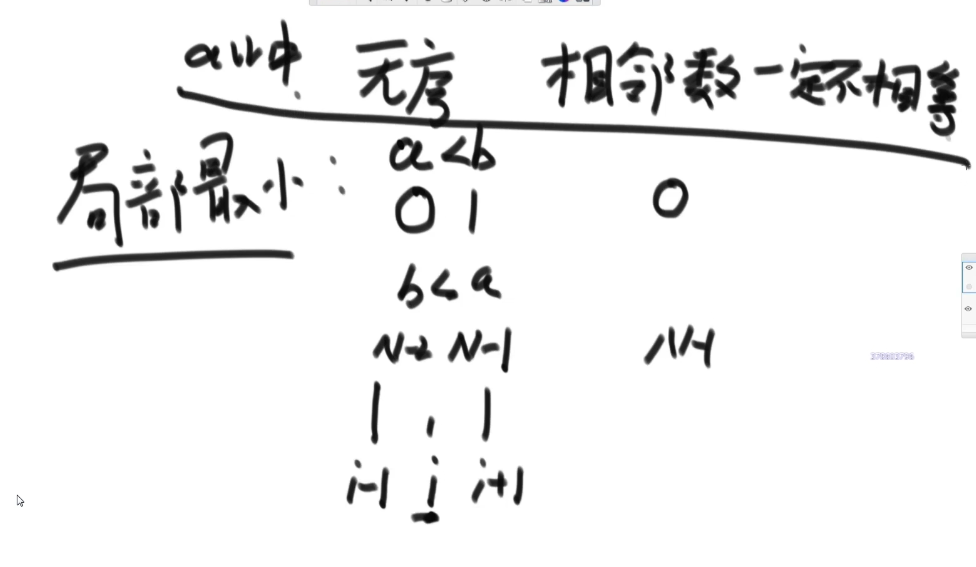 arr中 无序 相邻数一定不相等
局部最小: a<b
0 1 0
b<a
N-2 N-1 N-1
i-1 i i+1